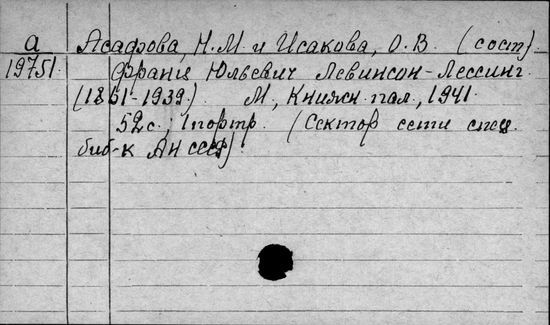 а Асафова, Н.М. и Исакова, О.В. (сост).
19751. Франц Юльевич Левинсон-Лессинг
(1861-1939.) М., Книжн. пал., 1941.
52 с.; 1 портр. (Сектор сети спец.
биб-к АН СССР)